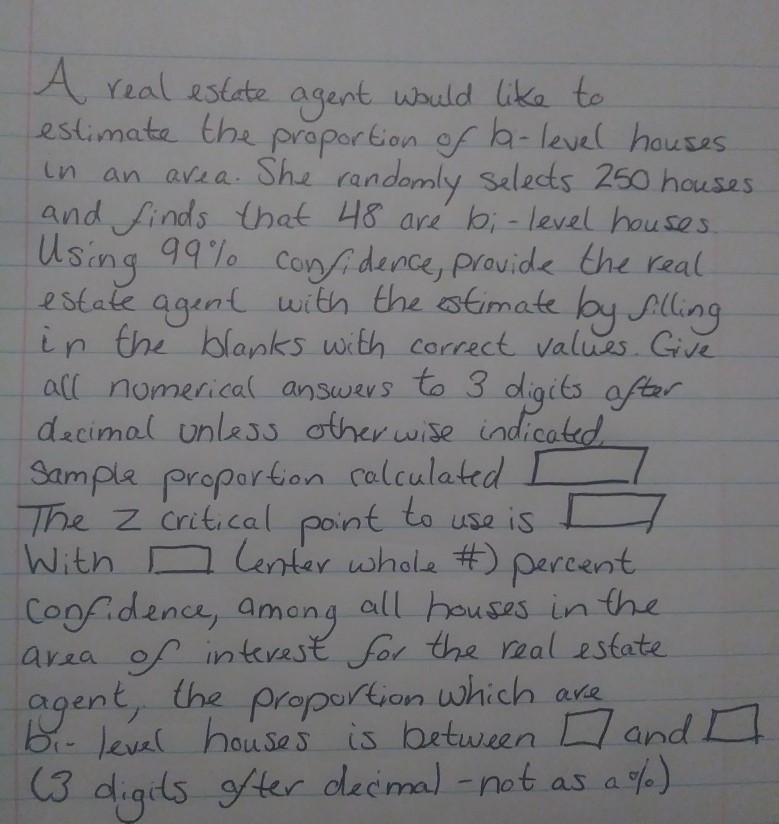 A real estate agent would like to
estimate the proportion of bi-level houses
in an area. She randomly selects 250 houses
and finds that 48 are bi-level houses.
Using 99% confidence, provide the real
estate agent with the estimate by filling
in the blanks with correct values. Give
all numerical answers to 3 digits after
decimal unless otherwise indicated.
Sample proportion calculated
The Z critical point to use is
With (enter whole #) percent
confidence, among all houses in the
area of interest for the real estate
agent, the proportion which are
bi-level houses is between and
(3 digits after decimal - not as a %)